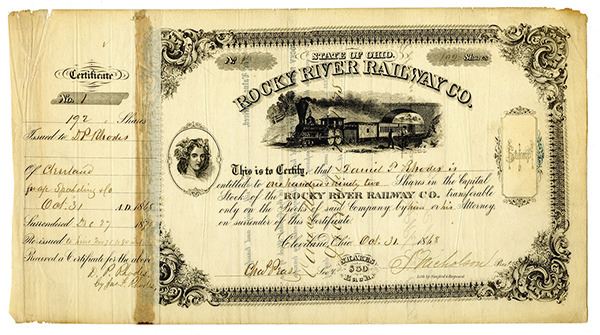 Certificate
No. 1
192 Shares
Issued to D.P. Rhodes
Of Cleveland
Oct. 31 A.D. 1868
Surrendered Dec 27 187
Re-issued to
Received a Certificate for the above
D. P. Rhodes
by
STATE OF OHIO.
No. 1
192 Shares
ROCKY RIVER RAILWAY CO.
This is to Certify, that Daniel P. Rhodes is
entitled to one hundred ninety two Shares in the Capital
Stock of the ROCKY RIVER RAILWAY CO. transferable
only on the Books of said Company by him or his Attorney
on surrender of this Certificate.
Cleveland, Ohio Oct. 31 1868
SHARES
$50
Each.
Secy
Pres